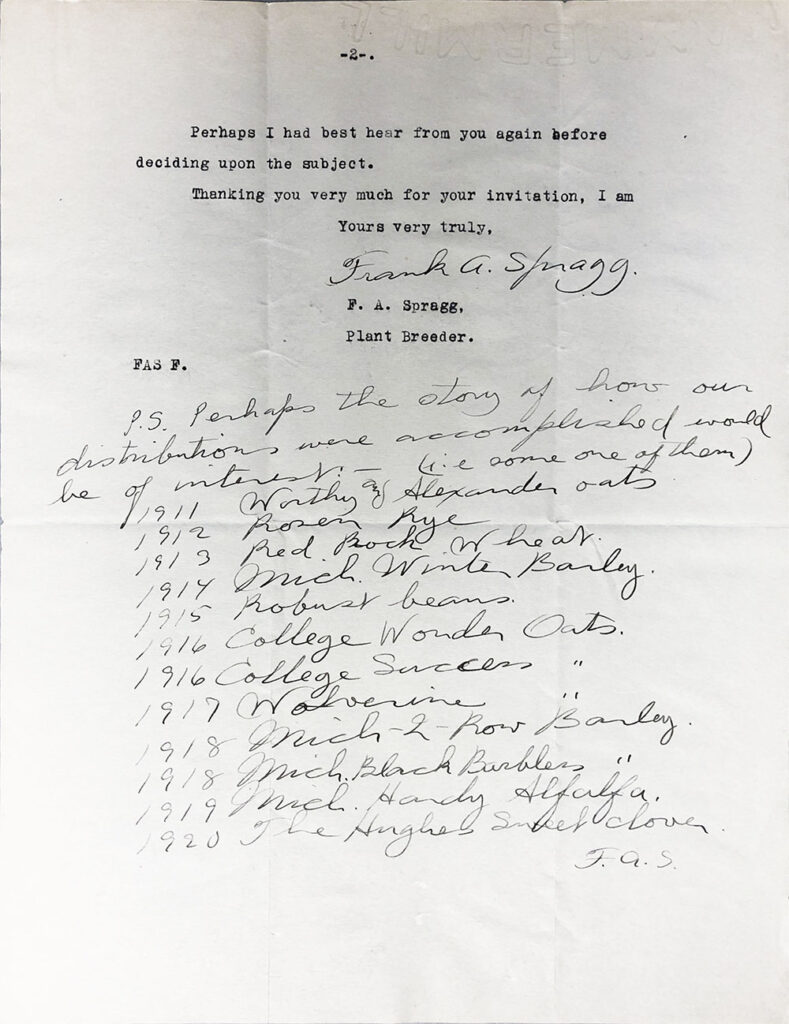 -2-.
Perhaps I had best hear from you again before
deciding upon the subject.
Thanking you very much for your invitation, I am
Yours very truly,
Frank A. Spragg.
F. A. Spragg,
Plant Breeder.
FAS F.
P.S. Perhaps the story of how our
distributions were accomplished would
be of interest:— (i.e some one of them)
1911 Worthy and Alexander oats
1912 Rosen Rye
1913 Red Rock Wheat.
1914 Mich. Winter Barley.
1915 Robust beans.
1916 College Wonder Oats.
1916 College Success "
1917 Wolverine "
1918 Mich-2-Row Barley.
1918 Mich. Black Barbless "
1919 Mich. Hardy Alfalfa.
1920 The Hughes Sweet clover.
F.A.S.